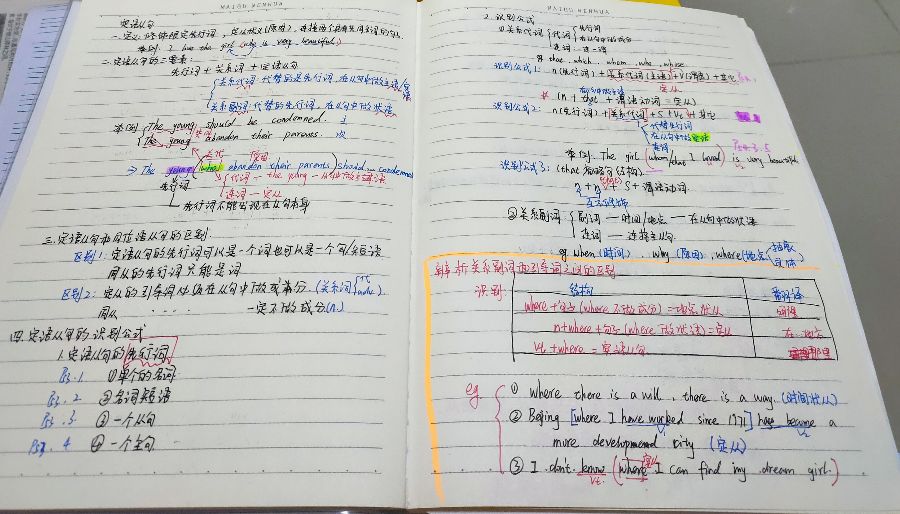 MAIBU WENHUA
定语从句
一.定义：修饰限定先行词
例: I love the girl (who is very beautiful.)
二.定语从句的三要素:
先行词 + 关系词 + 定语从句
关系代词: 代替的是先行词, 在从句中做主语/宾语
关系副词: 代替的先行词, 在从句中做状语
The young should be condemned. 主
(The young abandon their parents. 从
⇒ The young (who abandon their parents) should condemned
代词 — the young — 从句中做主语
连词 — 定从
先行词
先行词不能出现在从句本身
三.定语从句和同位语从句的区别:
区别1: 定语从句的先行词可以是一个词也可以是一个句/短语
同从的先行词只能是词
区别2: 定从的引导词 在从句中做成分. (关系词
同从 · · · · · 一定不做成分(n.)
四.定语从句的识别公式
1.定语从句的先行词
①单个的名词
②名词短语
③一个从句
④一个主句
MAIBU WENHUA
2.识别公式
①关系代词 代词 先行词
在从句中的成分
连词: 连一语
that. which. whom. who. whose
识别公式1: n(先行词) + 关系代词(主语) + V(谓语) + 其它
定从
* (n + that + 谓语动词 = 定从)
识别公式2: n(先行词) + 关系代词 + S + Vt + 其它
代替先行词
在从句中的宾语
连词
例. The girl (whom/that I loved) is very beautiful.
识别公式3: (that 省略了结构)
n + n + S + 谓语动词
互不修饰
②关系副词 副词 — 时间/地点 — 在从句中做状语
连词 — 连接主从句
eg. when (时间). why (原因). where (地点 抽象
具体
辨析关系副词和引导词之间的区别
识别: 结构 翻译
where+句子 (where 不做成分) = 地点状从
n+where+句子 (where 做状语) = 定从 在…地点
Vt. + where = 宾语从句
eg ① where there is a will, there is a way. (时间状从)
② Beijing [where I have worked since 1971] has become a
more developmened city (定从)
③ I don't know (where I can find my dream girl.)
Vt. 宾从